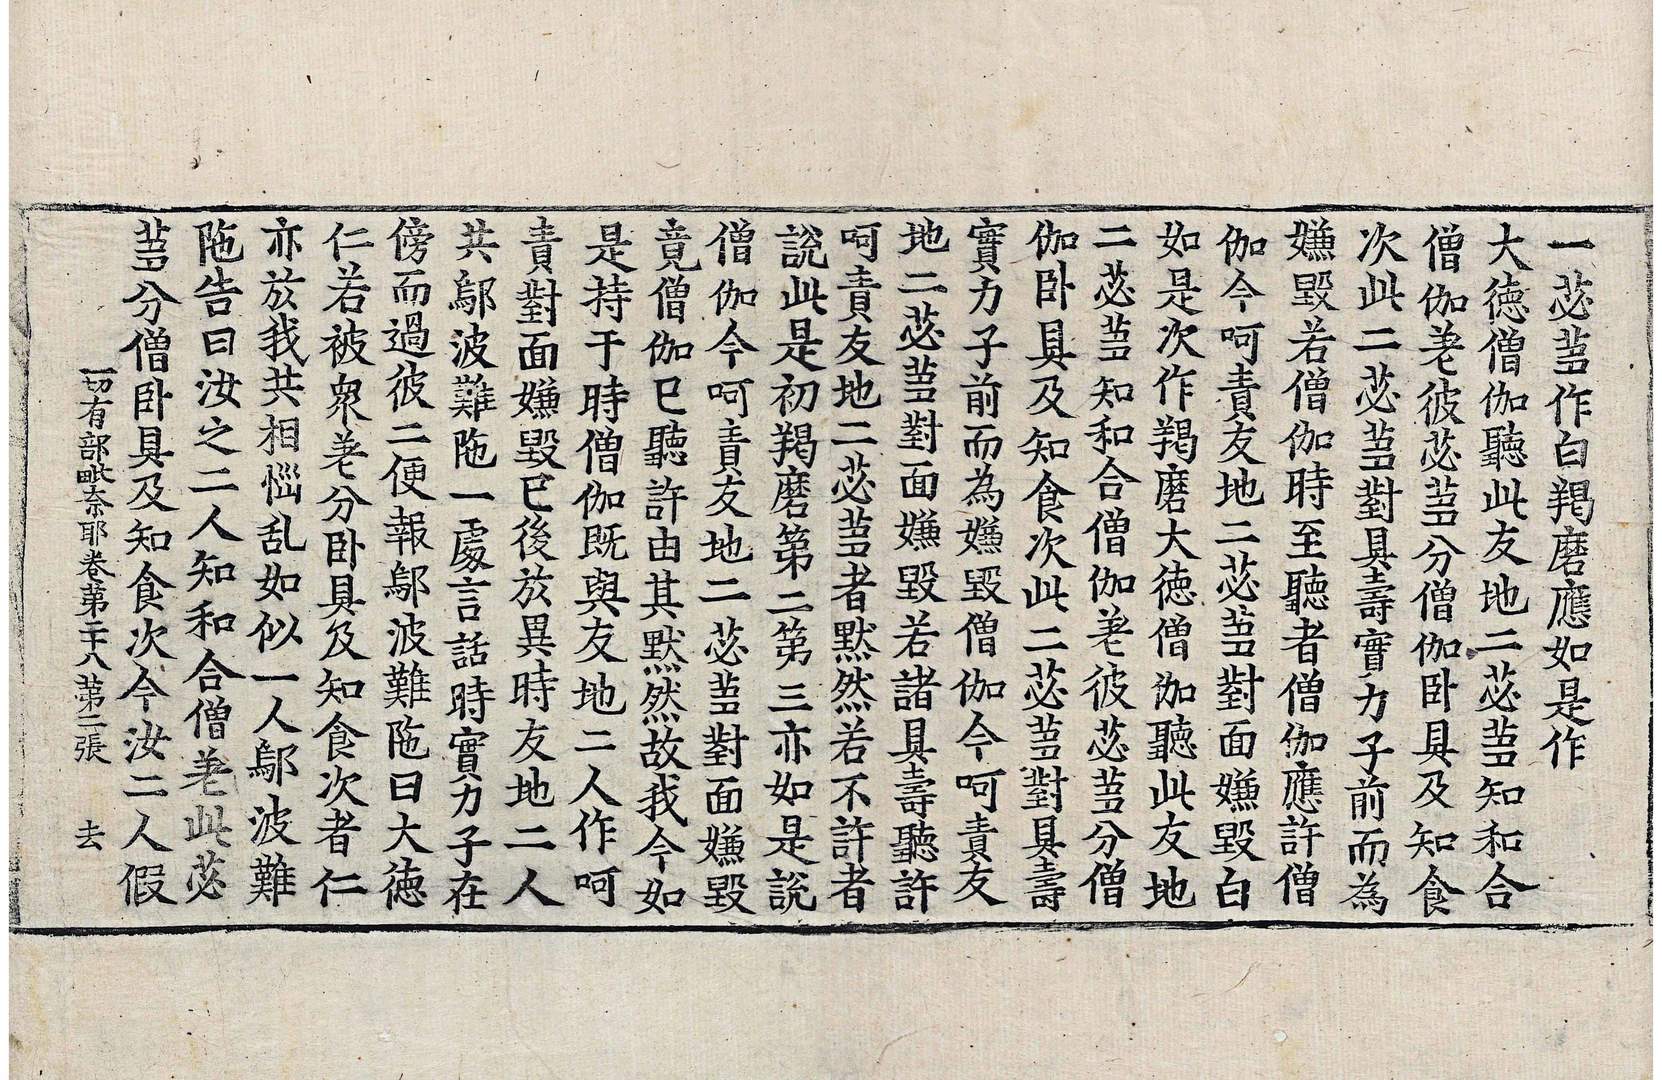 一苾芻作白羯磨應如是作
大德僧伽聽此友地二苾芻知和合
僧伽差彼苾芻分僧伽卧具及知食
次此二苾芻對具壽實力子前而為
嫌毀若僧伽時至聽者僧伽應許僧
伽今呵責友地二苾芻對面嫌毀白
如是次作羯磨大德僧伽聽此友地
二苾芻知和合僧伽差彼苾芻分僧
伽卧具及知食次此二苾芻對具壽
實力子前而為嫌毀僧伽今呵責友
地二苾芻對面嫌毀若諸具壽聽許
呵責友地二苾芻者默然若不許者
說此是初羯磨第二第三亦如是說
僧伽今呵責友地二苾芻對面嫌毀
竟僧伽已聽許由其默然故我今如
是持于時僧伽既與友地二人作呵
責對面嫌毀已後於異時友地二人
共鄔波難陁一處言話時實力子在
傍而過彼二便報鄔波難陁曰大德
仁若被衆差分卧具及知食次者仁
亦於我共相惱乱如似一人鄔波難
陁告曰汝之二人知和合僧差此苾
芻分僧卧具及知食次今汝二人假
一切有部毗奈耶卷第二十八 第二張 去